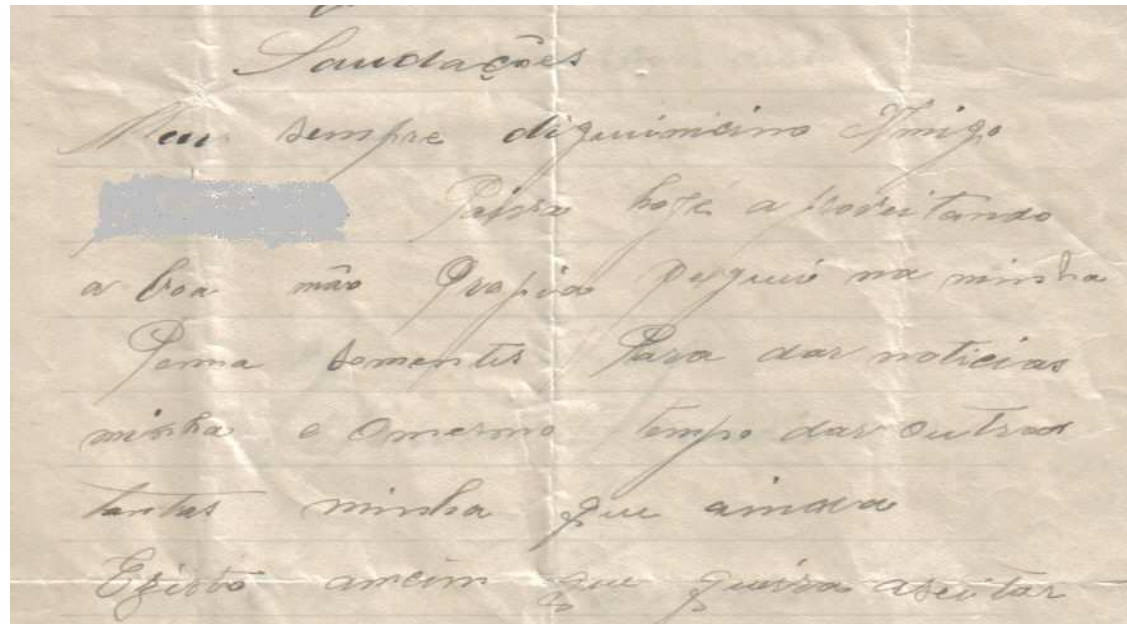 Saudações
Meu sempre diguinicimo Amigo
hoje a proveitando
a boa mão Propia peguei na minha
Penna somentes Para dar noticias
minha e Omesmo tempo dar outras
tantas minha que ainda
Ezisto ancim que queira aseitar